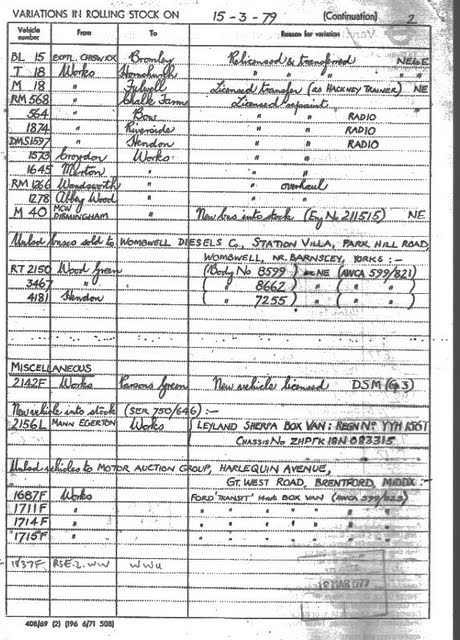 VARIATIONS IN ROLLING STOCK ON 15-3-79 (Continuation) 2
Vehicle number From To Reason for variation
BL 15 EXPTL. CHISWICK Bromley Relicensed & transferred NE&E
T 18 Works Hornchurch " " " " "
M 18 " Fulwell Licensed transfer (as HACKNEY TRAINER) NE
RM 568 " Chalk Farm Licensed repaint
564 " Bow " " RADIO
1874 " Riverside " " RADIO
DMS1597 " Hendon " " RADIO
1573 Croydon Works " "
1645 Merton " " "
RM 1266 Wandsworth " " overhaul
1278 Abbey Wood " " "
M 40 MCW BIRMINGHAM " New bus into stock (Eng No 211515) NE
Unlicd buses sold to WOMBWELL DIESELS Co., STATION VILLA, PARK HILL ROAD,
WOMBWELL, NR. BARNSLEY, YORKS :-
RT 2150 Wood Green (Body No 8599) NE (AWCA 599/821)
3467 " ( " 8662) " ( " " )
4181 Hendon ( " 7255) " ( " " )
MISCELLANEOUS
2142F Works Parsons Green New vehicle licensed DSM (G3)
New vehicle into stock (SER 750/646) :-
2156L MANN EGERTON Works LEYLAND SHERPA BOX VAN : REGN No YYH 156T
CHASSIS No ZHPFK 18N 083315
Unlicd vehicles to MOTOR AUCTION GROUP, HARLEQUIN AVENUE,
GT. WEST ROAD, BRENTFORD, MIDDX :-
1687F Works FORD 'TRANSIT' BOX VAN (AWCA 599/823)
1711F " " " " " " "
1714F " " " " " " "
1715F " " " " " " "
1837F RSE-2. WW WWU
408/69 (2) (196 6/71 508)